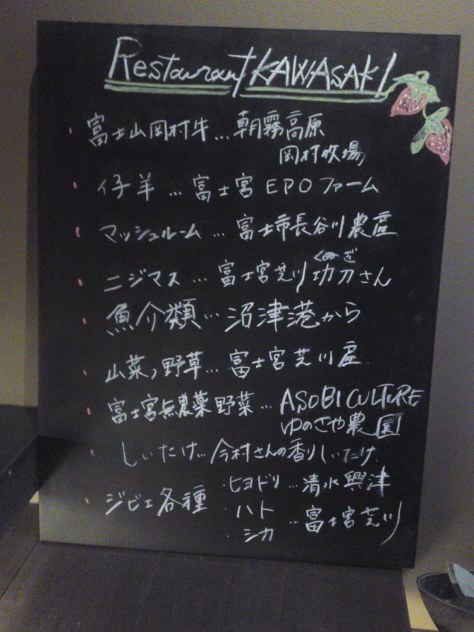 Restaurant KAWASAKI
富士山岡村牛…朝霧高原
岡村牧場
仔羊…富士宮EPOファーム
マッシュルーム…富士市長谷川農産
くぬぎ
ニジマス…富士宮芝川功刀さん
魚介類…沼津港から
山菜,野草…富士宮芝川産
富士宮無農薬野菜…ASOBI CULTURE
ゆのさや農園
しいたけ…今村さんの香りしいたけ
ジビエ各種
・ヒヨドリ…清水興津
・ハト
・シカ
…富士宮芝川